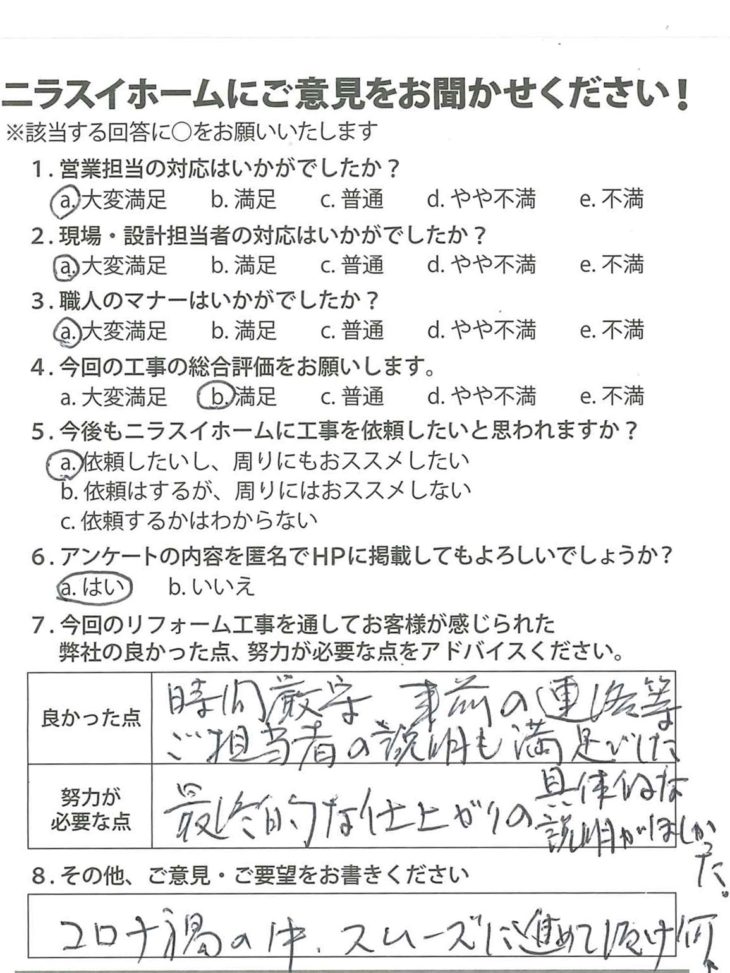 ニラスイホームにご意見をお聞かせください！
※該当する回答に○をお願いいたします
1. 営業担当の対応はいかがでしたか？
a. 大変満足 b. 満足 c. 普通 d. やや不満 e. 不満
2. 現場・設計担当者の対応はいかがでしたか？
a. 大変満足 b. 満足 c. 普通 d. やや不満 e. 不満
3. 職人のマナーはいかがでしたか？
a. 大変満足 b. 満足 c. 普通 d. やや不満 e. 不満
4. 今回の工事の総合評価をお願いします。
a. 大変満足 b. 満足 c. 普通 d. やや不満 e. 不満
5. 今後もニラスイホームに工事を依頼したいと思われますか？
a. 依頼したいし、周りにもおススメしたい
b. 依頼はするが、周りにはおススメしない
c. 依頼するかはわからない
6. アンケートの内容を匿名でHPに掲載してもよろしいでしょうか？
a. はい b. いいえ
7. 今回のリフォーム工事を通してお客様が感じられた
弊社の良かった点、努力が必要な点をアドバイスください。
良かった点
時間厳守 事前の連絡等
ご担当者の説明も満足でした
努力が
必要な点
最終的な仕上がりの具体的な
説明がほしかっ
た。
8. その他、ご意見・ご要望をお書きください
コロナ禍の中、スムーズに進めて頂け何